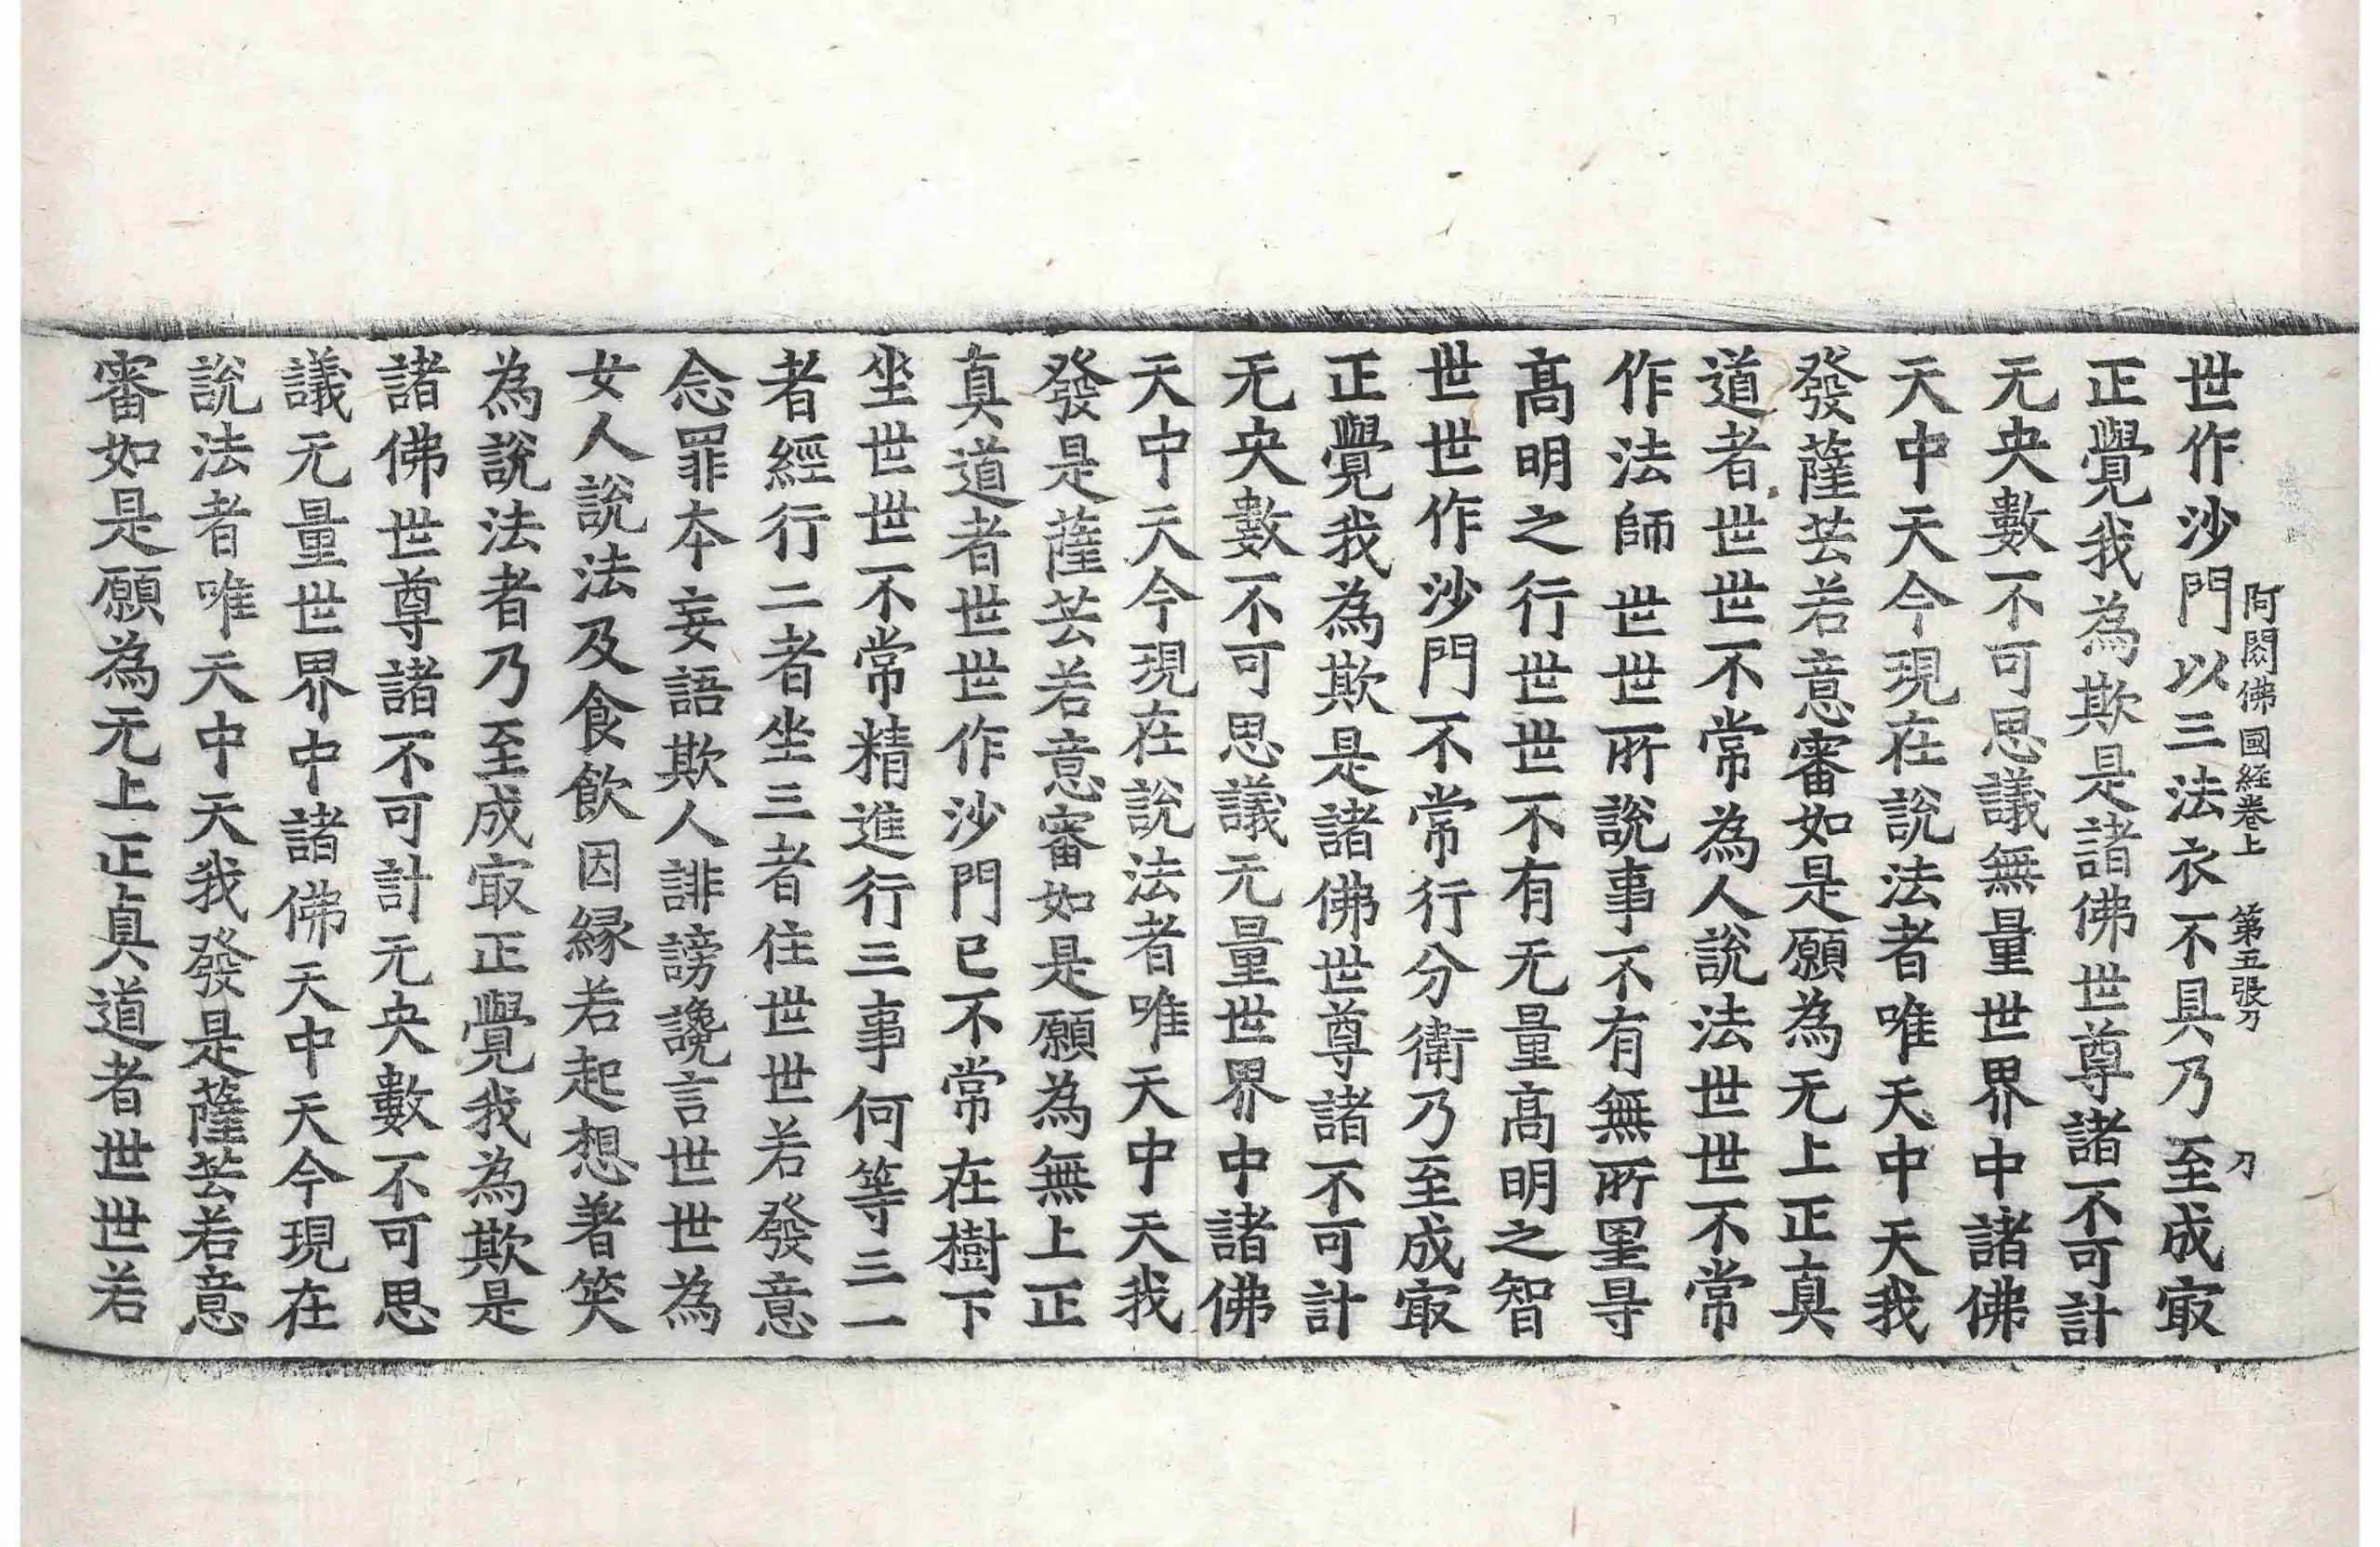 阿閦佛國経巻上　第五張　刀
刀
世作沙門以三法衣不具乃至成㝡
正覺我為欺是諸佛世尊諸不可計
无央數不可思議無量世界中諸佛
天中天今現在說法者唯天中天我
發薩芸若意審如是願為无上正真
道者世世不常為人說法世世不常
作法師世世所說事不有無所罣㝵
高明之行世世不有无量高明之智
世世作沙門不常行分衛乃至成㝡
正覺我為欺是諸佛世尊諸不可計
无央數不可思議无量世界中諸佛
天中天今現在說法者唯天中天我
發是薩芸若意審如是願為無上正
真道者世世作沙門已不常在樹下
坐世世不常精進行三事何等三一
者經行二者坐三者住世世若發意
念罪本妄語欺人誹謗讒言世世為
女人說法及食飲因緣若起想著笑
為說法者乃至成㝡正覺我為欺是
諸佛世尊諸不可計无央數不可思
議无量世界中諸佛天中天今現在
說法者唯天中天我發是薩芸若意
審如是願為无上正真道者世世若